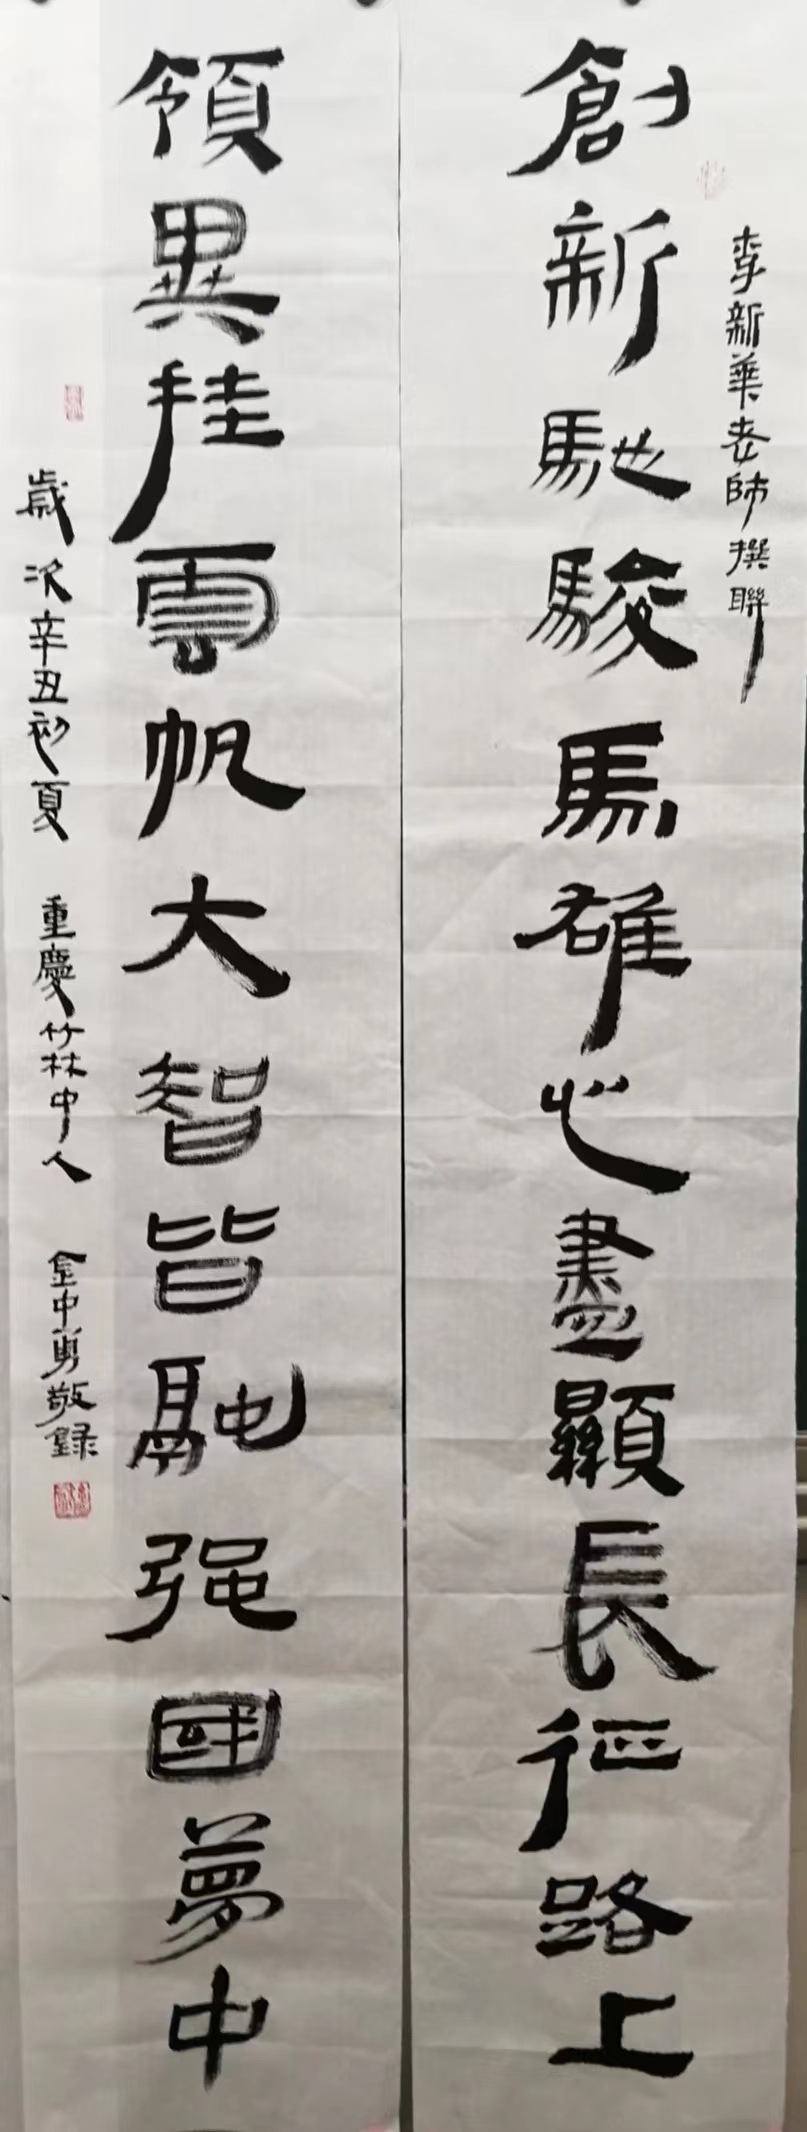 李新華老師撰聯
創新馳駿馬雄心盡顯長征路上
領異挂雲帆大智皆融强國夢中
歲次辛丑初夏 重慶竹林中人 金中勇敬録